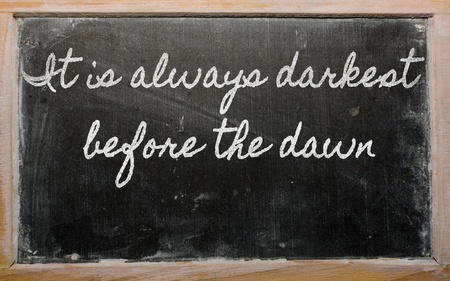 It is always darkest
before the dawn